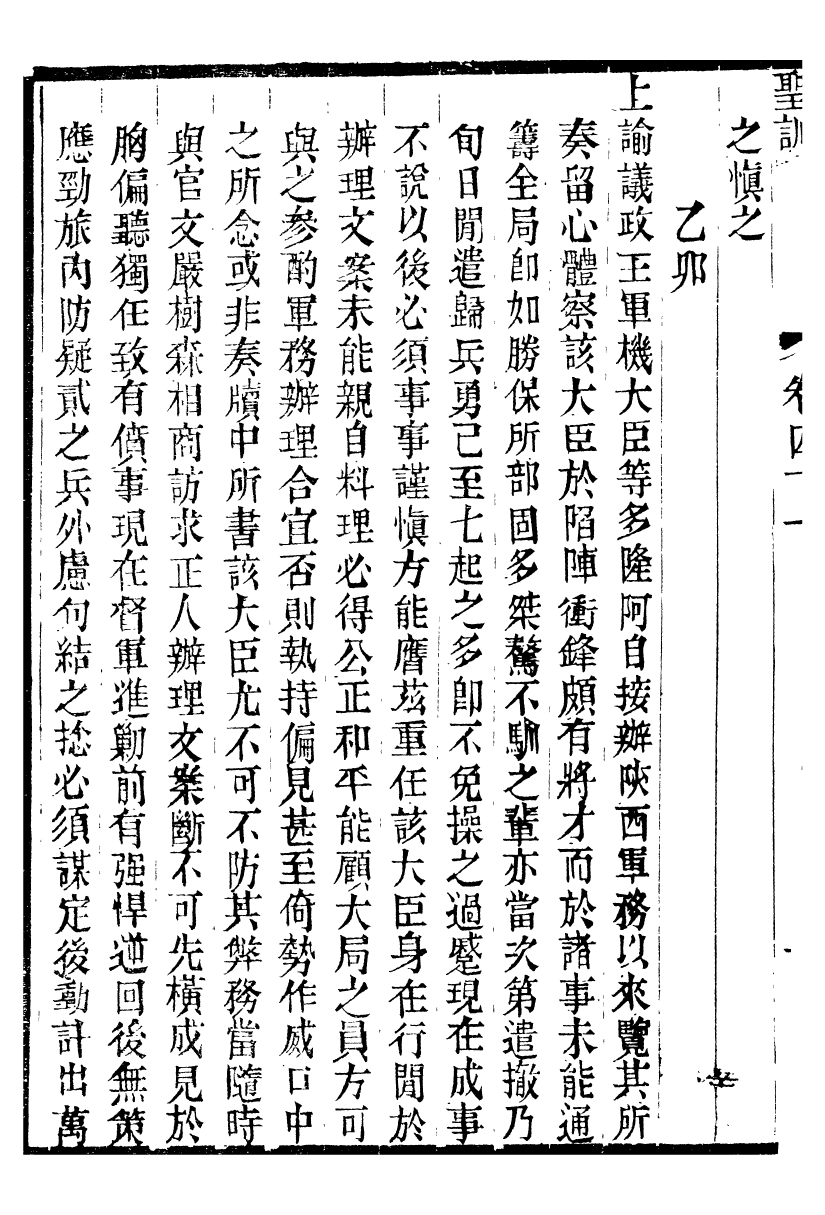 聖訓
卷四十一
之慎之
乙卯
上諭議政王軍機大臣等多隆阿自接辦陝西軍務以來覽其所
奏留心體察該大臣於陷陣衝鋒頗有將才而於諸事未能通
籌全局卽如勝保所部固多桀驁不馴之輩亦當次第遣撤乃
旬日閒遣歸兵勇已至七起之多卽不免操之過蹙現在成事
不說以後必須事事謹慎方能膺茲重任該大臣身在行閒於
辦理文案未能親自料理必得公正和平能顧大局之員方可
與之參酌軍務辦理合宜否則執持偏見甚至倚勢作威口中
之所念或非奏牘中所書該大臣尤不可不防其弊務當隨時
與官文嚴樹森相商訪求正人辦理文案斷不可先橫成見於
胸偏聽獨任致有僨事現在督軍進勦前有强悍逆回後無策
應勁旅內防疑貳之兵外慮勾結之捻必須謀定後動計出萬